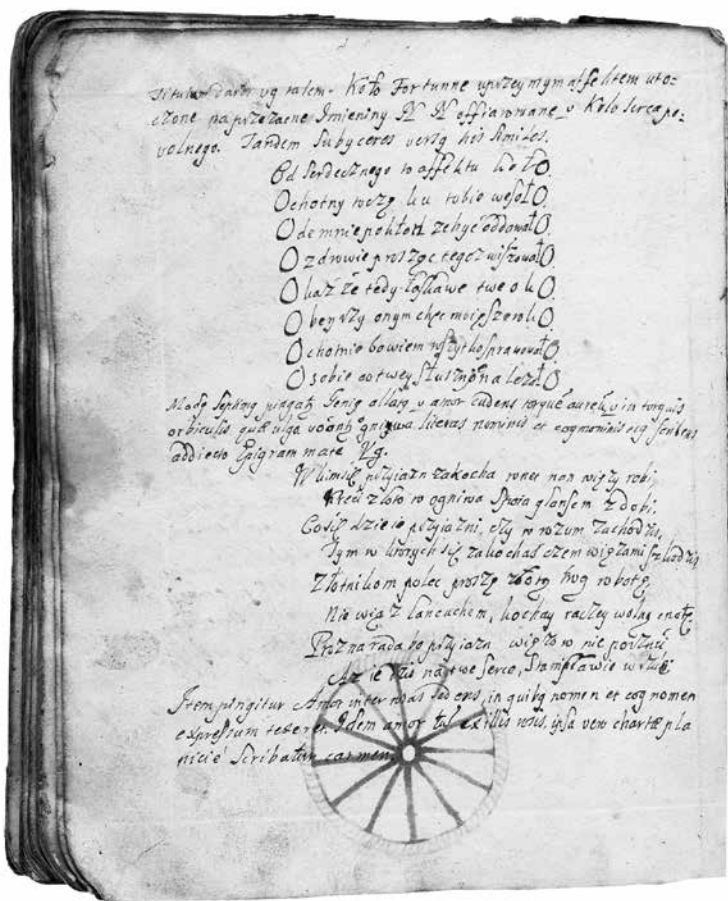 Titulum dabis vg talem. Koło Fortunne uprzeymym affektem uto=
czone na przezacne Imieniny N N offiarowane v Koło serca po=
volnego. Tandem subyceres versg his similes.
Od serdecznego to affektu kołO.
Ochotny toczę ku tobie wesołO.
Ode mnie pokłon zebyć oddawałO
O zdrowie prosząc tegoż winszowałO.
Okaż że tedy łaskawe twe okO.
Obeyrzy onym chęć moię szerokO.
Ochotnie bowiem wszytko sprawowałO.
O sobie co twey słuszno nalezałO.
pingatg Genig allatg v amor cudens torque aureu v in torquis
orbiculis quae vulgo vocant literas nominis et cognominis eig scribens
addiecto Epigrammate Vg.
W kim się przyiazn zakocha wnet non więzy robi;
Kreci złoto w ogniwa glansem zdobi;
Cosię dzieie przyiazni, czy w rozum zachodzis,
Tym w ktorych się zakochas czem więzami szkodzis
Złotnikom polec proszę złotą robotę,
Nie wiąz łancuchem, kochay raczey wolną cnotę.
Prozna rada bo przyiazn więzow nie porzuci
Az ie na twe serce, Stanisławie wrzuci
Item pingitur Amor inter rosas sedens, in quibg nomen et cognomen
expressum texeret. Idem amor ex illis rosis, ipsa vero chartae pla
nicie scribatur carmen.